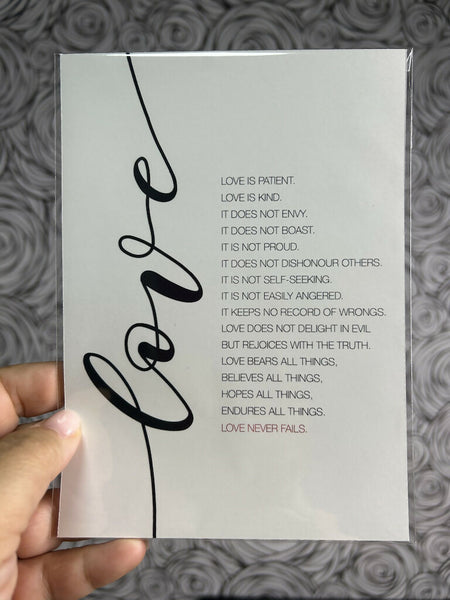 love
LOVE IS PATIENT.
LOVE IS KIND.
IT DOES NOT ENVY.
IT DOES NOT BOAST.
IT IS NOT PROUD.
IT DOES NOT DISHONOUR OTHERS.
IT IS NOT SELF-SEEKING.
IT IS NOT EASILY ANGERED.
IT KEEPS NO RECORD OF WRONGS.
LOVE DOES NOT DELIGHT IN EVIL
BUT REJOICES WITH THE TRUTH.
LOVE BEARS ALL THINGS,
BELIEVES ALL THINGS,
HOPES ALL THINGS,
ENDURES ALL THINGS.
LOVE NEVER FAILS.